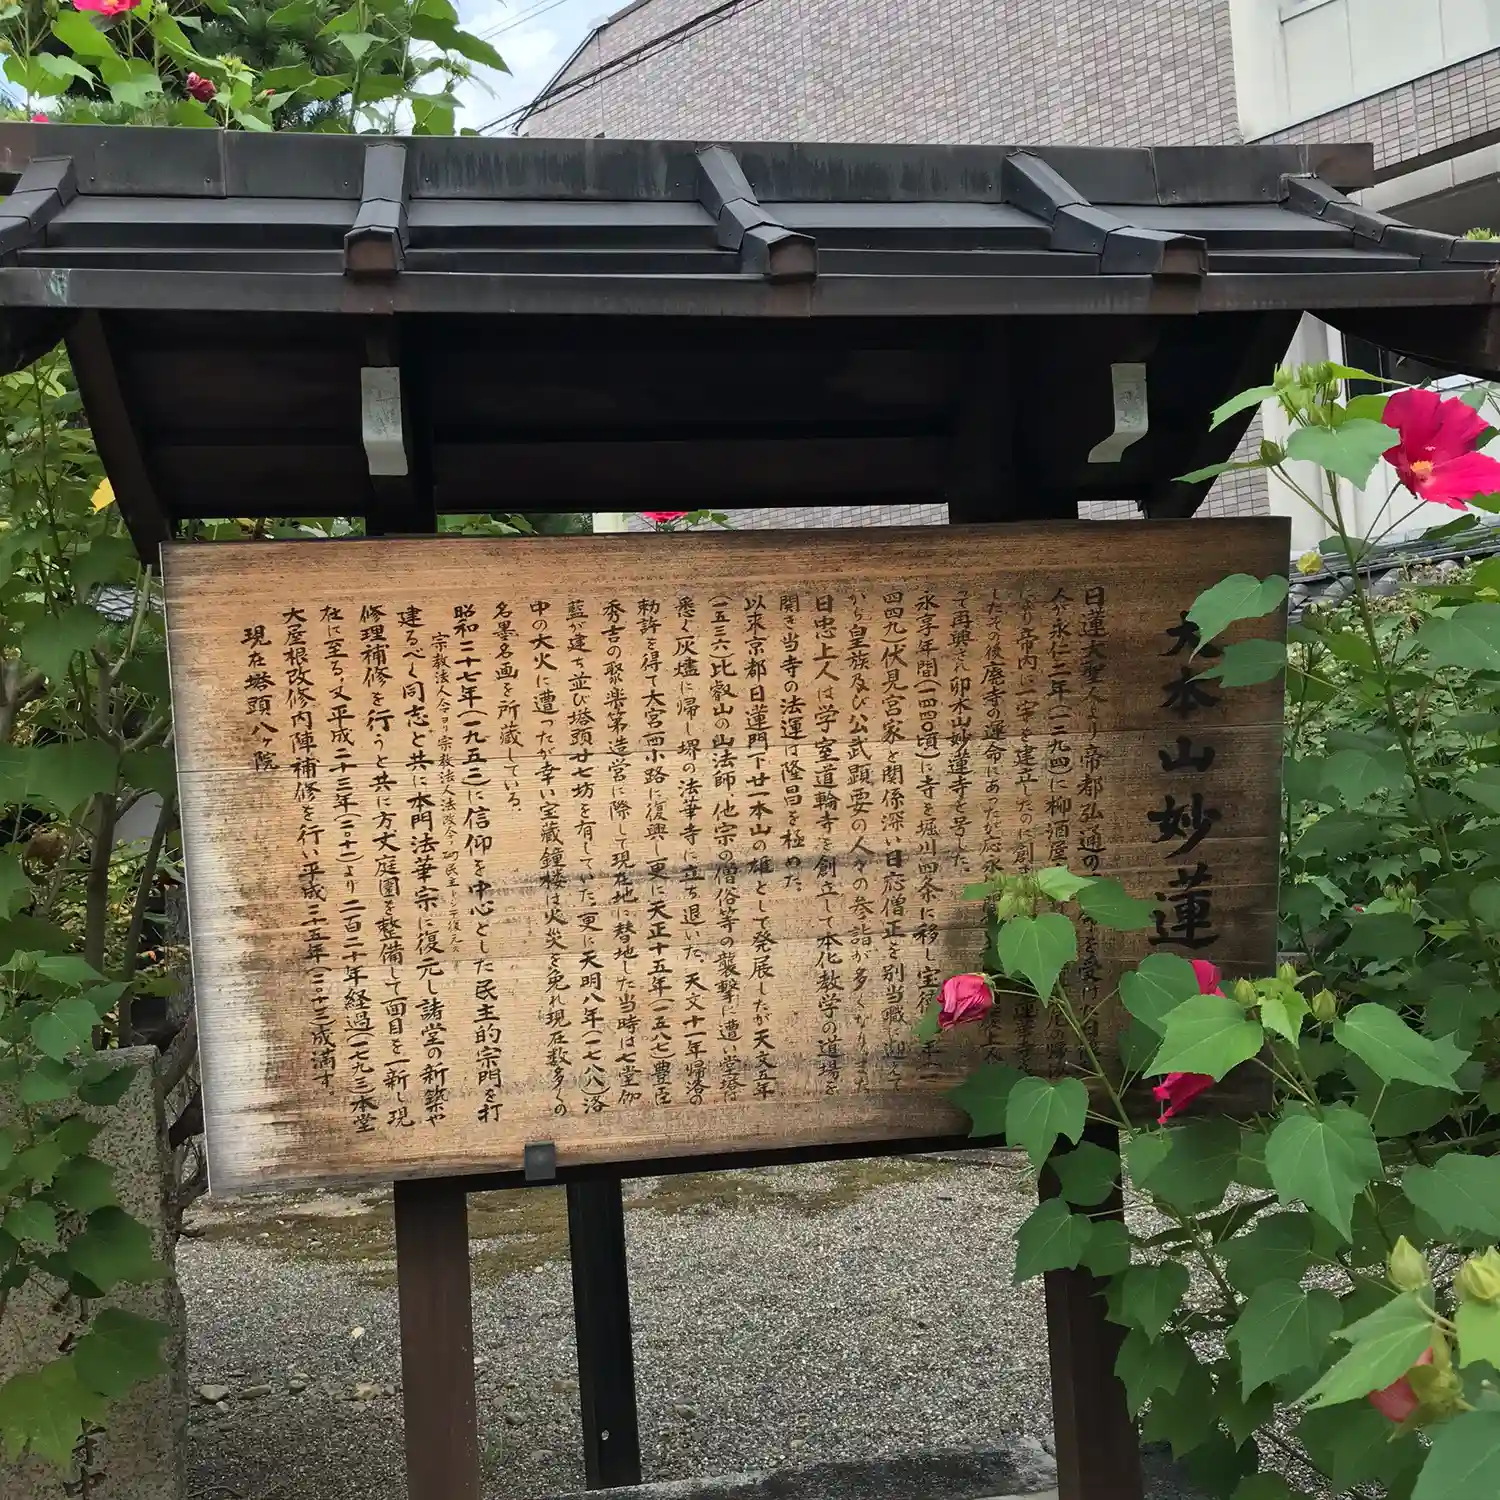 大本山妙蓮
日蓮大聖人より帝都弘通の 命を受けた日像
人が永仁二年(一二九四)に柳酒屋 尼帰依
により帝内に一宇を建立したのに創ま
したその後廃寺の運命にあったが応永
って再興され卯木山妙蓮寺を号した。
永享年間(一四四〇頃)に寺を堀川四条に移し宝徳 年
四四九)伏見宮家と関係深い日応僧正を別当職に迎えて
から皇族及び公武顕要の人々の参詣が多くなりまた
日忠上人は学室道輪寺を創立して本化教学の道場を
開き当寺の法運は隆昌を極めた。
以来京都日蓮門下廿一本山の雄として発展したが天文五年
(一五三六)比叡山の山法師、他宗の僧俗等の襲撃に遭い堂塔
悉く灰燼に帰し堺の法華寺に立ち退いた。天文十一年帰洛の
勅許を得て大宮西小路に復興し更に天正十五年(一五八七)豊臣
秀吉の聚楽第造営に際して現在地に替地した当時は七堂伽
藍が建ち並び塔頭廿七坊を有していた。更に天明八年(一七八八)洛
中の大火に遭ったが幸い宝蔵鐘楼は火災を免れ現在数多くの
名墨名画を所蔵している。
昭和二十七年(一九五二)に信仰を中心とした民主的宗門を打
宗教法人令ヨリ宗教法人法改令
建るべく同志と共に本門法華宗に復元し諸堂の新築や
修理補修を行うと共に方丈庭園を整備して面目を一新し現
在に至る。又平成二十三年(二十一)より二百二十年経過(一七九三)本堂
大屋根改修内陣補修を行い平成二五年(二十三)成満す。
現在塔頭八ヶ院